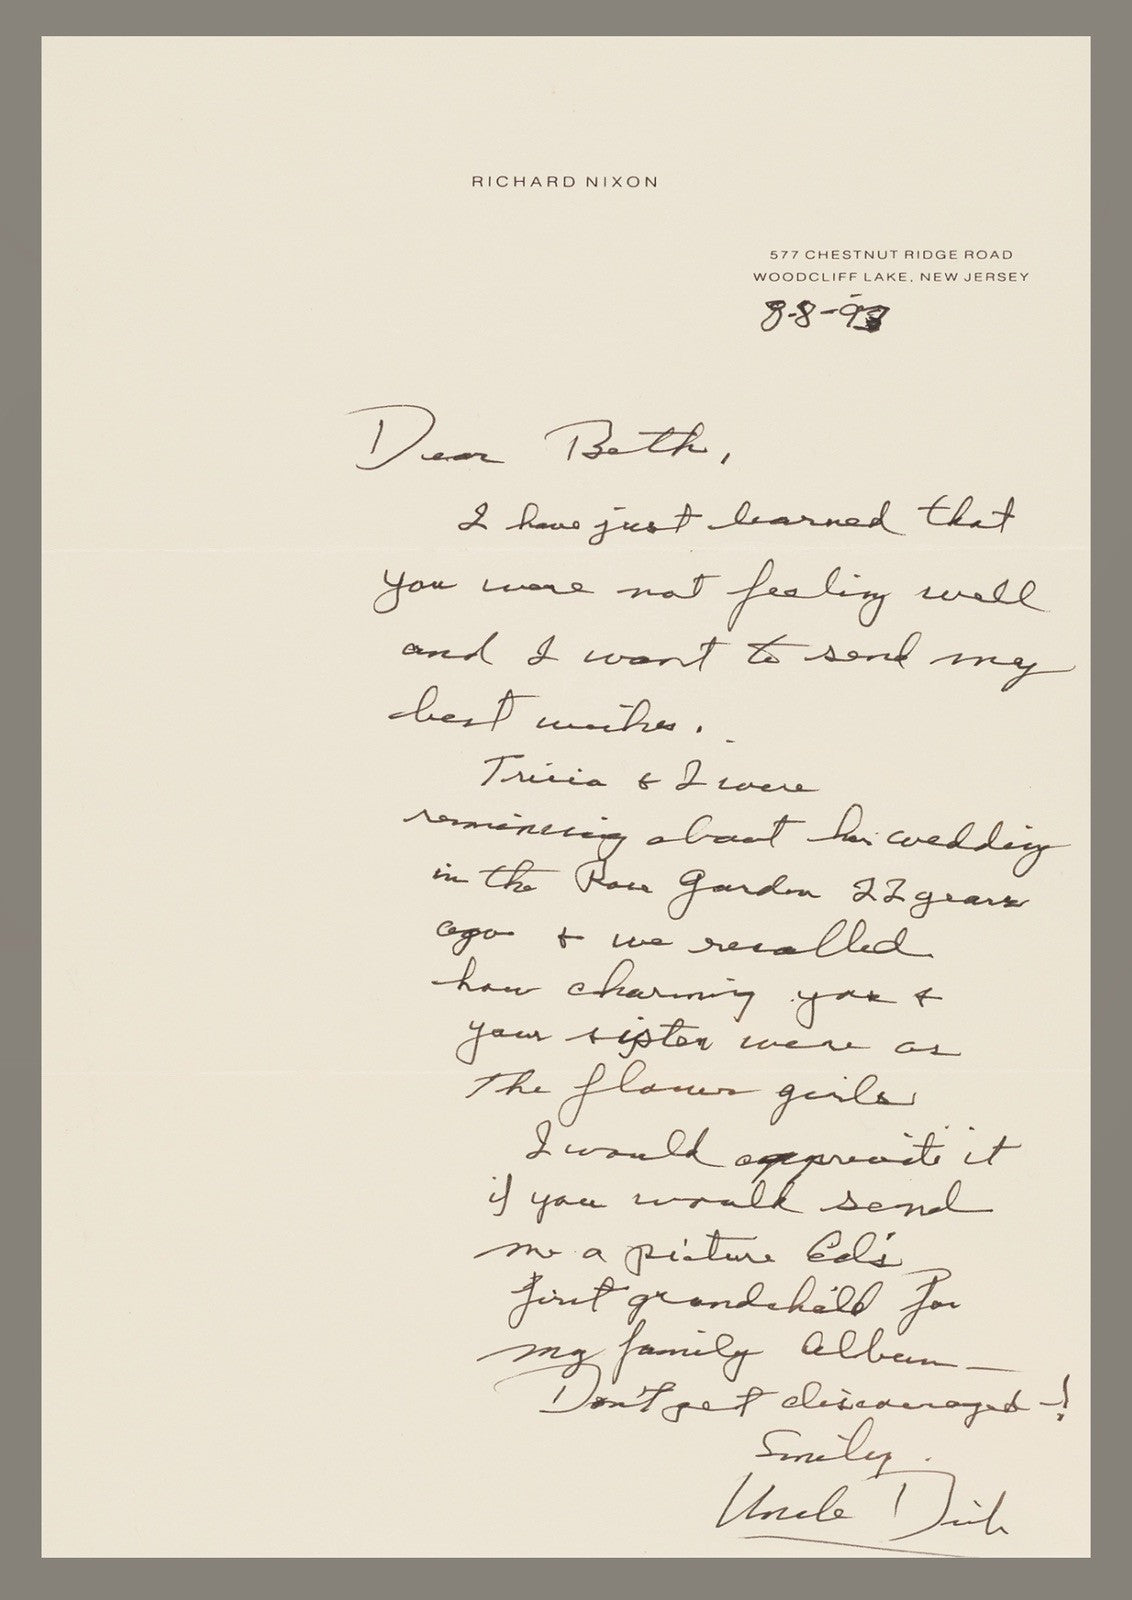 RICHARD NIXON
577 CHESTNUT RIDGE ROAD
WOODCLIFF LAKE, NEW JERSEY
8-8-93
Dear Beth,
I have just learned that
you were not feeling well
and I want to send my
best wishes.
Tricia & I were
reminiscing about her wedding
in the Rose Garden 22 years
ago & we recalled
how charming you &
your sister were as
the flower girls
I would appreciate it
if you would send
me a picture Ed's
first grandchild for
my family album—
Don't get discouraged—!
Uncle Dick